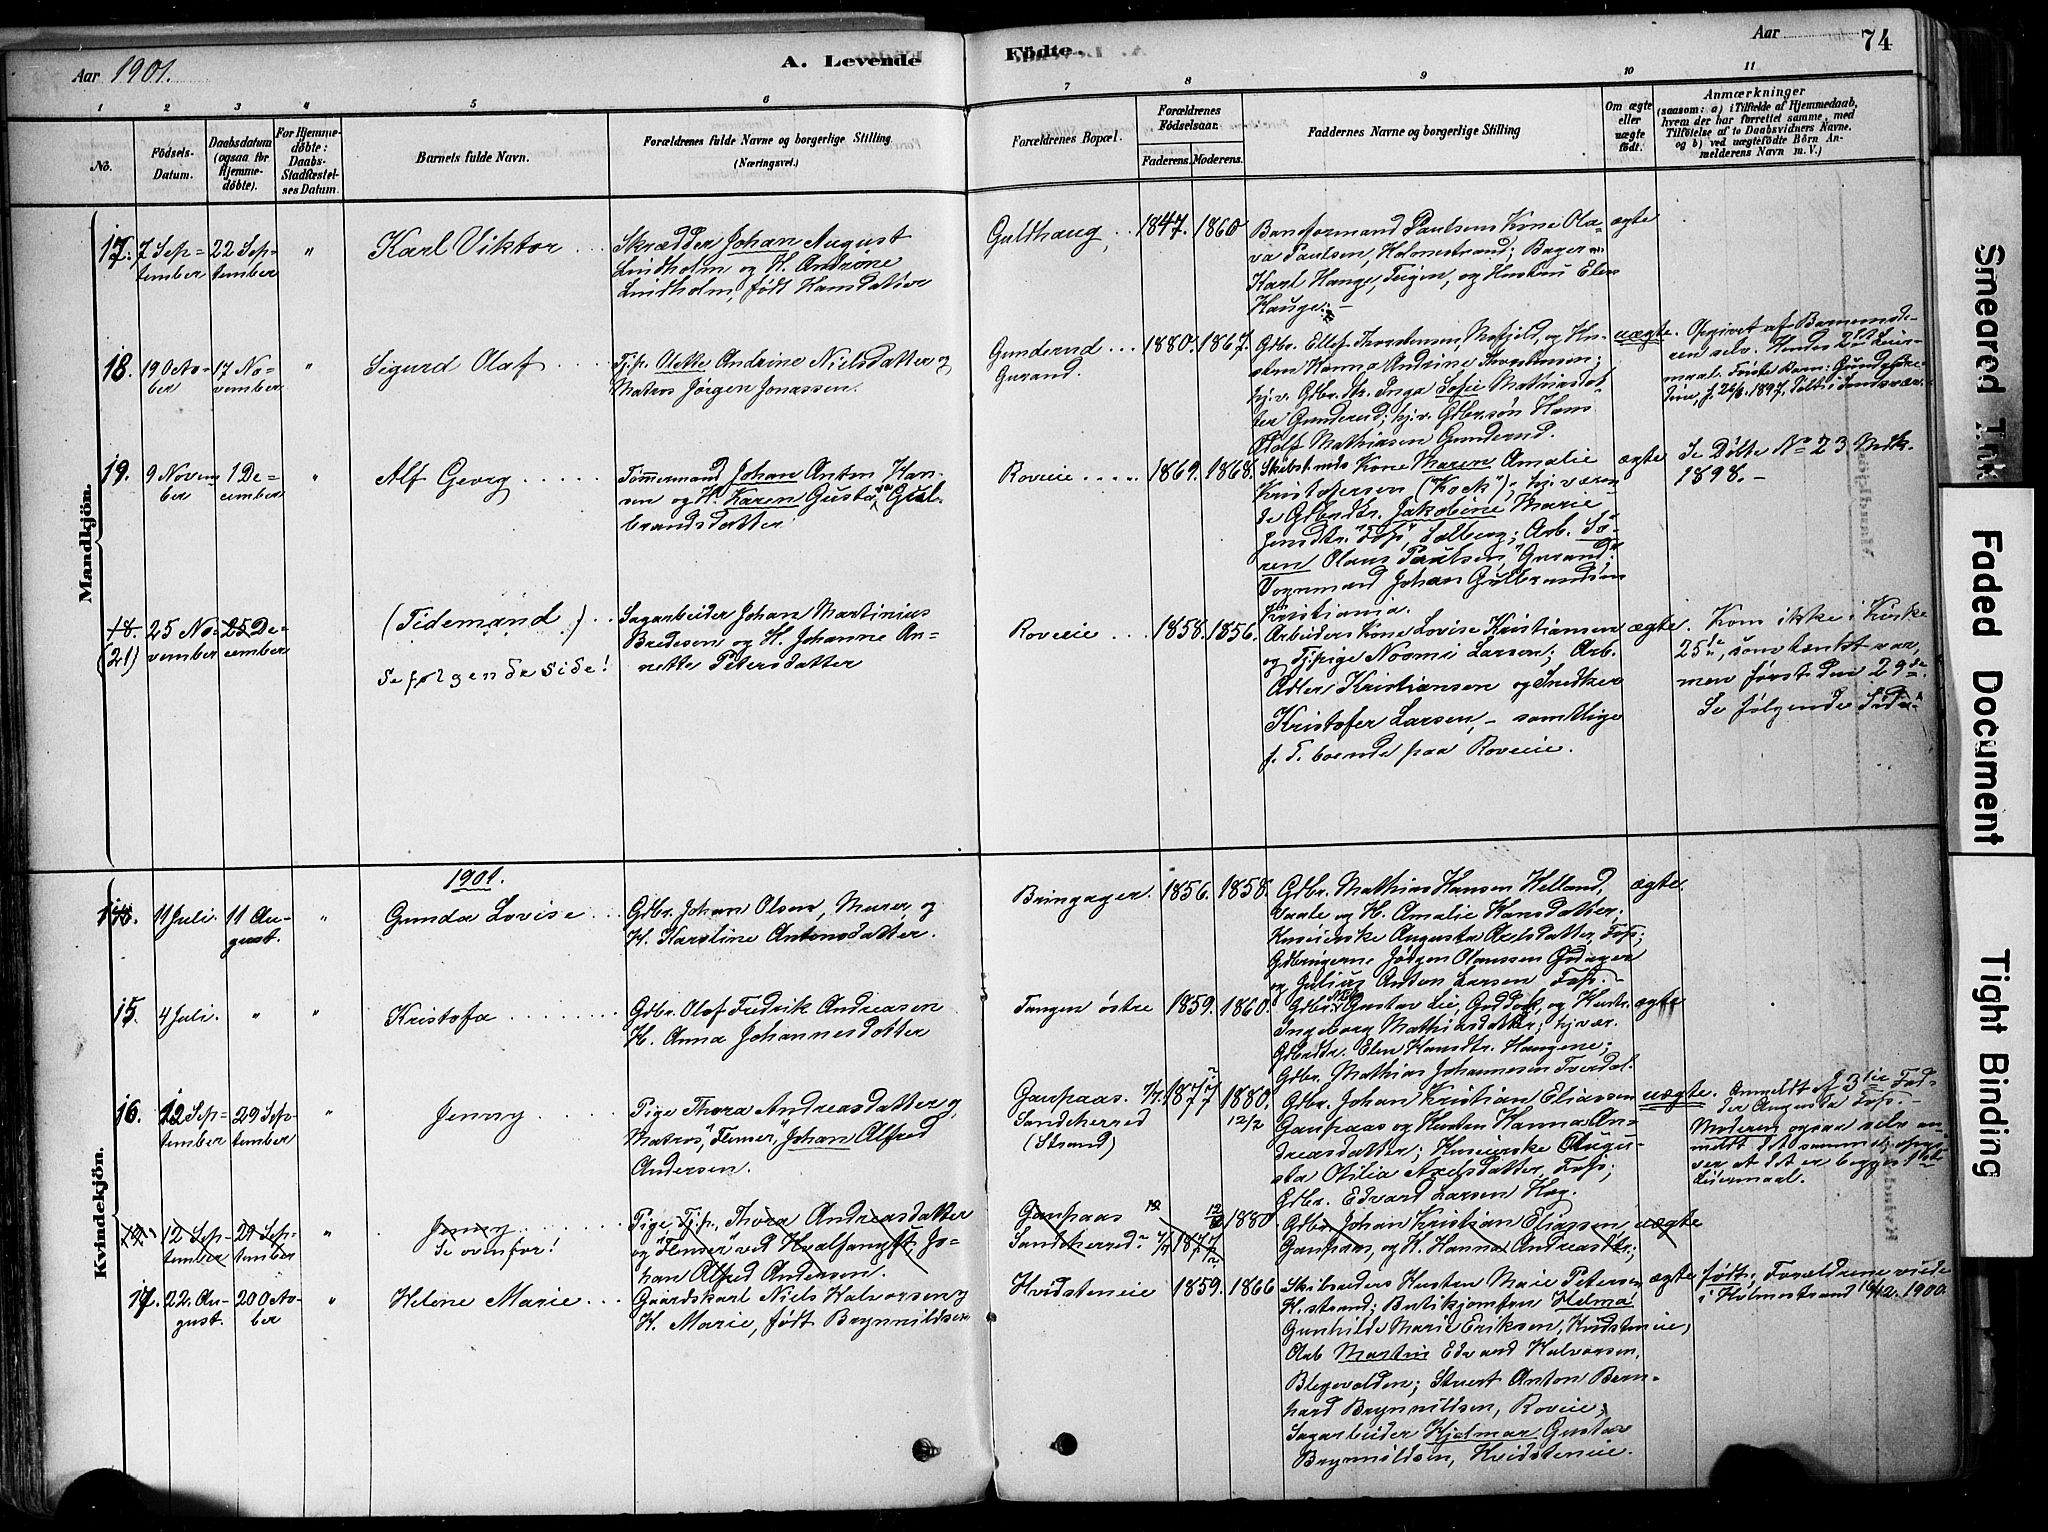 Aar 1901.
A. Levende Födte.
Aar
74
1 2 3 " 5 6 7 8 9 10 11
No.
Födsels-
Datum.
Daabsdatum
(ogsaa for
Hjemme-
döbte).
For Hjemme-
döbte:
Daabs-
Stadfæstel-
ses Datum.
Barnets fulde Navn.
Forældrenes fulde Navne og borgerlige Stilling
(Næringsvei.)
Forældrenes Bopæl.
Forældrenes
Födselsaar.
Faderens. Moderens.
Faddernes Navne og borgerlige Stilling
Om ægte
eller
uægte
födt.
Anmærkninger
(saasom: a) i Tilfælde af Hjemmedaab,
hvem der har forrettet samme, med
Tilföielse af to Daabsvidners Navne.
og b) ved uægtefödte Börn An-
melderens Navn m. V.)
Mandkjön.
17.
7 Sep=
tember
22 Sep=
tember
"
Karl Viktor
Skrædder Johan August
Lindholm og H. Andrine
Lindholm, født Hansdatter
Guldhaug
1847. 1860
Baneformand Paulsens Kone Ola-
va Paulsen, Holmestrand; Bager
Karl Hauge, Teigen, og Hustru Elen
Hauge. –
ægte
18.
19 Octo-
ber
17 No-
vember
"
Sigurd Olaf
Tj.p. Olette Andrine Nielsdatter og
Matros Jørgen Jonassen
Gunderud
Gurand.
1880. 1867.
Gdbr. Ellef Thorstensen, og Hu-
stru Hanna Andrine Thorstensen;
hj.v. Gdbr.dtr. Inga Sofie Mathiasdat-
ter Gunderud; hj.v. Gdbr.søn Hans
Olaf Mathiasen Gunderud.
uægte.
Opgivet af Barnemode-
ren selv. Hendes 2det Leier-
maal. Første Barn:
f. 1897, døbt i
19.
9 Novem
ber
1 De-
cember
"
Alf Georg
Tømmermand Johan Anton Han-
sen og H. Karen Gusta Gul-
brandsdatter
Roveie
1869. 1868.
Skibst.mds Kone Maren Amalie
Kristofersen ("Kock"); hj.væren-
de Gdbrdtr. Jakobine Marie
Jensdtr. Solberg; Arb. Sø-
ren Olaus Paulsen, Gurand;
Vognmand Johan Gulbrandsen
Kristiania.
ægte
Se Døbte No 23 Mdk.
1898. –
18.
(21)
25 No-
vember
25 De-
cember
(Tidemand)
Se følgende side!
Sagarbeider Johan Martinius
Bredesen og H. Johanne An-
nette Petersdatter
Roveie
1858. 1856.
Arbeiders Kone Lovise Kristiansen
og Tj.pige Noomi Larsen; Arb.
Adler Kristiansen og Snedker
Kristofer Larsen, – samtlige
f. T. boende paa Roveie.
ægte.
Kom ikke i Kirke
25de, som tænkt var,
men først den 29de.
Se følgende Side
Kvindekjön.
1901.
14.
11 Juli
11 Au-
gust.
"
Gunda Lovise
Gdbr. Johan Olsen, Murer, og
H. Karoline Antonsdatter.
Bringager.
1856. 1858.
Gdbr. Mathias Hansen Helland,
Vaale og H. Amalie Hansdatter;
Huseierske Augusta Axelsdatter, Fossi;
Gdbrugerne Jørgen Olaussen Godager
og Julius Anton Larsen Fossi. –
ægte.
15.
4 Juli.
"
"
Kristofa
Gdbr. Olaf Fredrik Andreasen
H. Anna Johannesdatter
Tangen østre
1859. 1860.
Gdbr. Gustav Lie, og Hustr.
Ingeborg Mathiasdatter; hj.vær.
Gdbrdtr. Elen Hansdtr. Haugene;
Gdbr. Mathias Johannesen Tverdal.
ægte
16.
12 Sep=
tember
29 Sep
tember
"
Jenny
Pige Thora Andreasdatter og
Matros, "Flenser", Johan Alfred
Andersen.
Gaupaas.
Sandeherred
(Strand)
1877 1880.
12/2
Gdbr. Johan Kristian Eliassen
Gaupaas og Hustru Hanna An-
dreasdatter; Huseierske Augu-
sta Otilia Axelsdatter, Fossi;
Gdbr. Edvard Larsen Kaa.
uægte.
Anmeldt af 3die Fad-
der Augusta Fossi. –
Moderen ogsaa selv an-
meldt det samme og opgi-
ver, at det er begges 1ste
Leiermaal.
12 Sep-
tember
29 Sep-
tember
"
Jenny
Se ovenfor!
Pige, Tj.p. Thora Andreasdatter
og "Flenser" ved Hvalfangst Jo-
han Alfred Andersen.
Gaupaas
Sandeherred
1877 1880
Gdbr. Johan Kristian Eliassen
Gaupaas, og H. Hanna Andreasdtr;
uægte
17.
22. Au-
gust.
20 Octo-
ber
"
Helene Marie
Gaardskarl Niels Halvorsen og
H. Marie, født Brynnildsen
Hvidsteneie
1859. 1866
Skibsreders Hustru Marie Petersen
H.strand; Butikjomfru Helma
Gunhilde Marie Eriksen, Hvidsteneie;
Arb Martin Edvard Halvorsen,
Blegevolden; Stuert Anton Bern-
hard Brynnildsen, Roveie;
Sagarbeider Hjelmar Gustav
Brynnildsen, Hvidsteneie.
ægte
født; Forældrene viede
i Holmestrand 1900.
Smeared Ink
Faded Document
Tight Binding